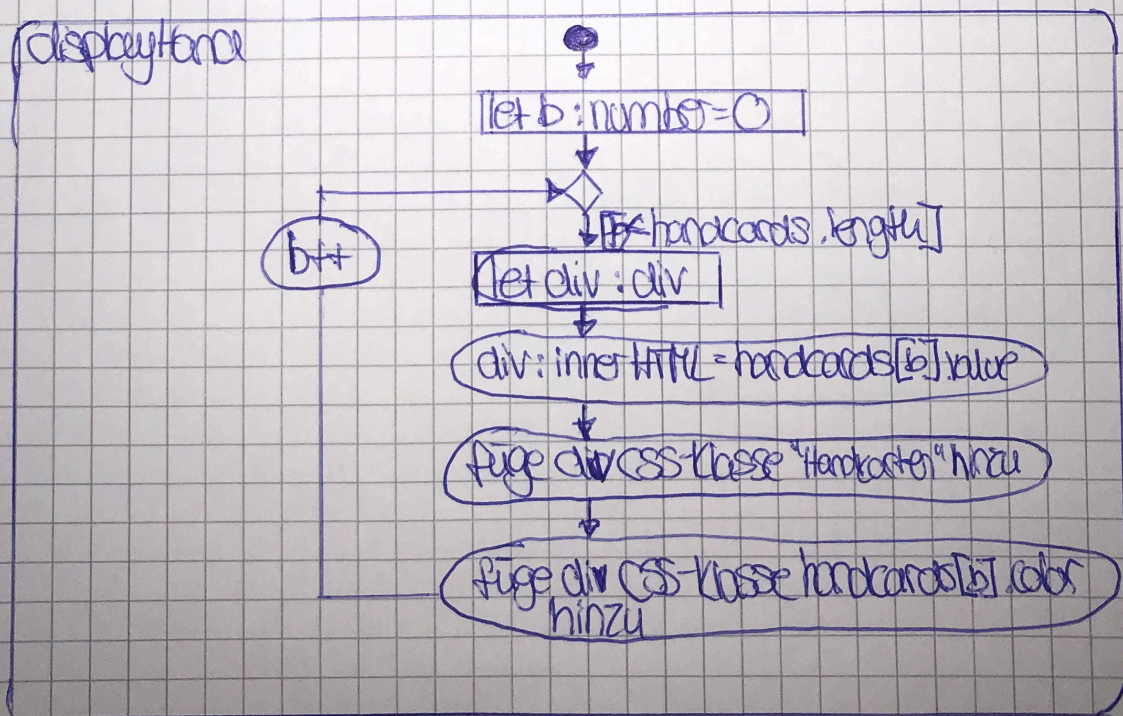 displayHand
let b : number = 0
[b< handcards.length]
b++
let div : div
div : innerHTML = handcards[b].value
füge div CSS-Klasse "Handkarten" hinzu
füge div CSS-Klasse handcards[b].color
hinzu